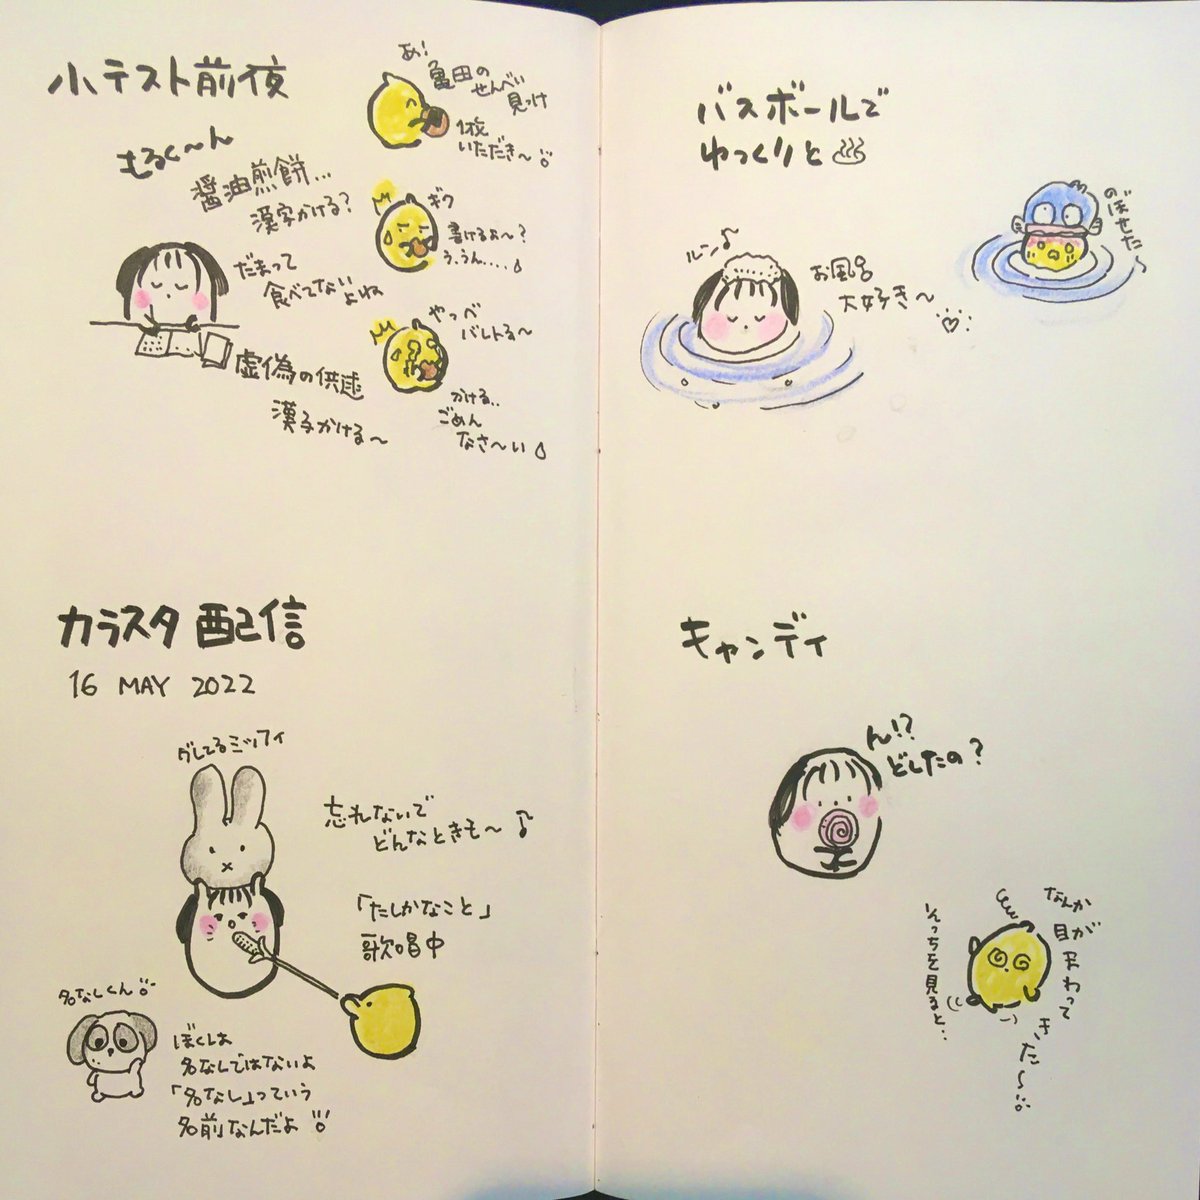 小テスト前夜
あ!
亀田の
せんべい
見っけ
1枚
いただき〜
もるく〜ん
醤油煎餅...
漢字かける?
ギク
書けるよ〜?
う、うん....
だまって
食べてない
よね
やっべ
バレトる〜
虚偽の供述
漢字かける〜
かける..
ごめん
なさ〜い
カラスタ配信
16 MAY 2022
グレてるミッフィ
忘れないで
どんなときも〜♪
「たしかなこと」
歌唱中
名なしくん
ぼくは
名なしではないよ
「名なし」っていう
名前なんだよ
バスボールで
ゆっくりと♨
ルン♪
お風呂
大好き〜
のぼせた〜
キャンディ
ん!?
どしたの?
なんか
目が
まわって
きた〜
そっちを見ると...